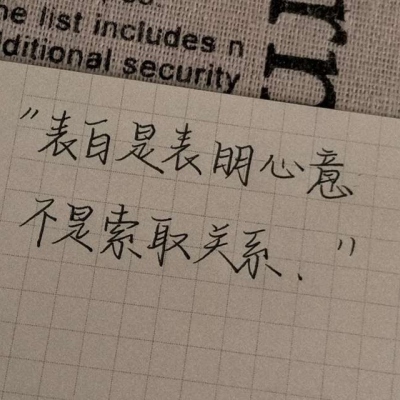 he list includes n
dditional security
"表白是表明心意
不是索取关系."